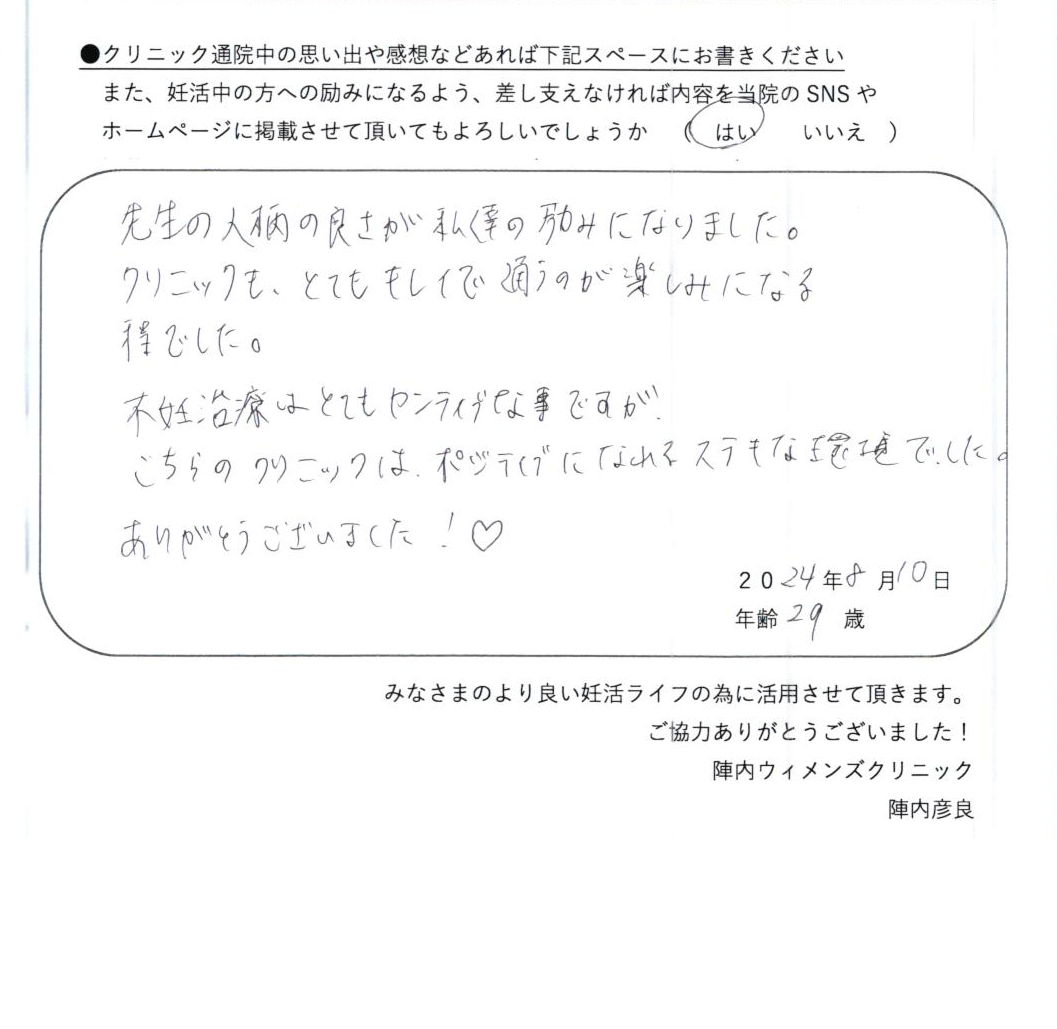 ●クリニック通院中の思い出や感想などあれば下記スペースにお書きください
また、妊活中の方への励みになるよう、差し支えなければ内容を当院の SNS や
ホームページに掲載させて頂いてもよろしいでしょうか （ はい いいえ ）
先生の人柄の良さが私達の励みになりました。
クリニックも、とてもキレイで通うのが楽しみになる
程でした。
不妊治療はとてもセンティブな事ですが、
こちらのクリニックは、ポジティブになれるステキな環境でした。
ありがとうございました！♡
2024年8月10日
年齢 29 歳
みなさまのより良い妊活ライフの為に活用させて頂きます。
ご協力ありがとうございました！
陣内ウィメンズクリニック
陣内彦良